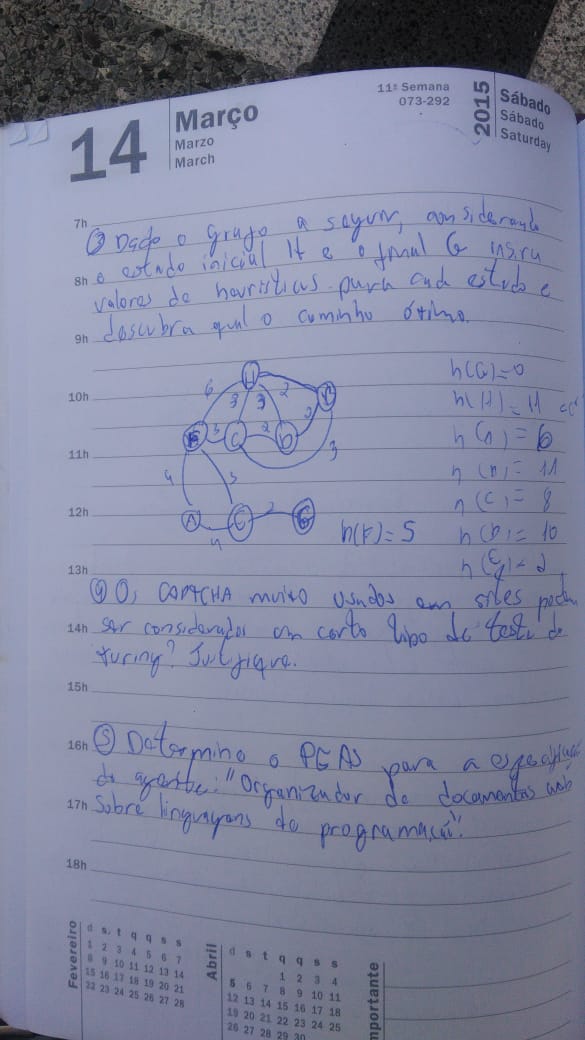 14
Março
Marzo
March
11ª Semana
073-292
2015
Sábado
Sábado
Saturday
7h
③ Dado o grafo a seguir, considerando
8h
o estado inicial H e o final G insira
valores de heurísticas para cada estado e
9h
descubra qual o caminho ótimo.
10h
11h
12h
13h
H
B
F
C
D
A
E
G
6
3
3
2
3
2
2
3
4
3
4
2
h(G)=0
h(H)=11
h(A)=6
h(B)=11
h(C)=8
h(D)=10
h(E)=2
h(F)=5
④ Os CAPTCHA muito usados em sites podem
14h
ser considerados um certo tipo de teste de
turing? Justifique.
15h
16h
⑤ Determine o PEAS para a especificação
do agente: "Organizador de documentos web
17h
sobre linguagens de programação".
18h
Fevereiro
d s t q q s s
1 2 3 4 5 6 7
8 9 10 11 12 13 14
15 16 17 18 19 20 21
22 23 24 25 26 27 28
Abril
d s t q q s s
1 2 3 4
5 6 7 8 9 10 11
12 13 14 15 16 17 18
19 20 21 22 23 24 25
26 27 28 29 30
mportante